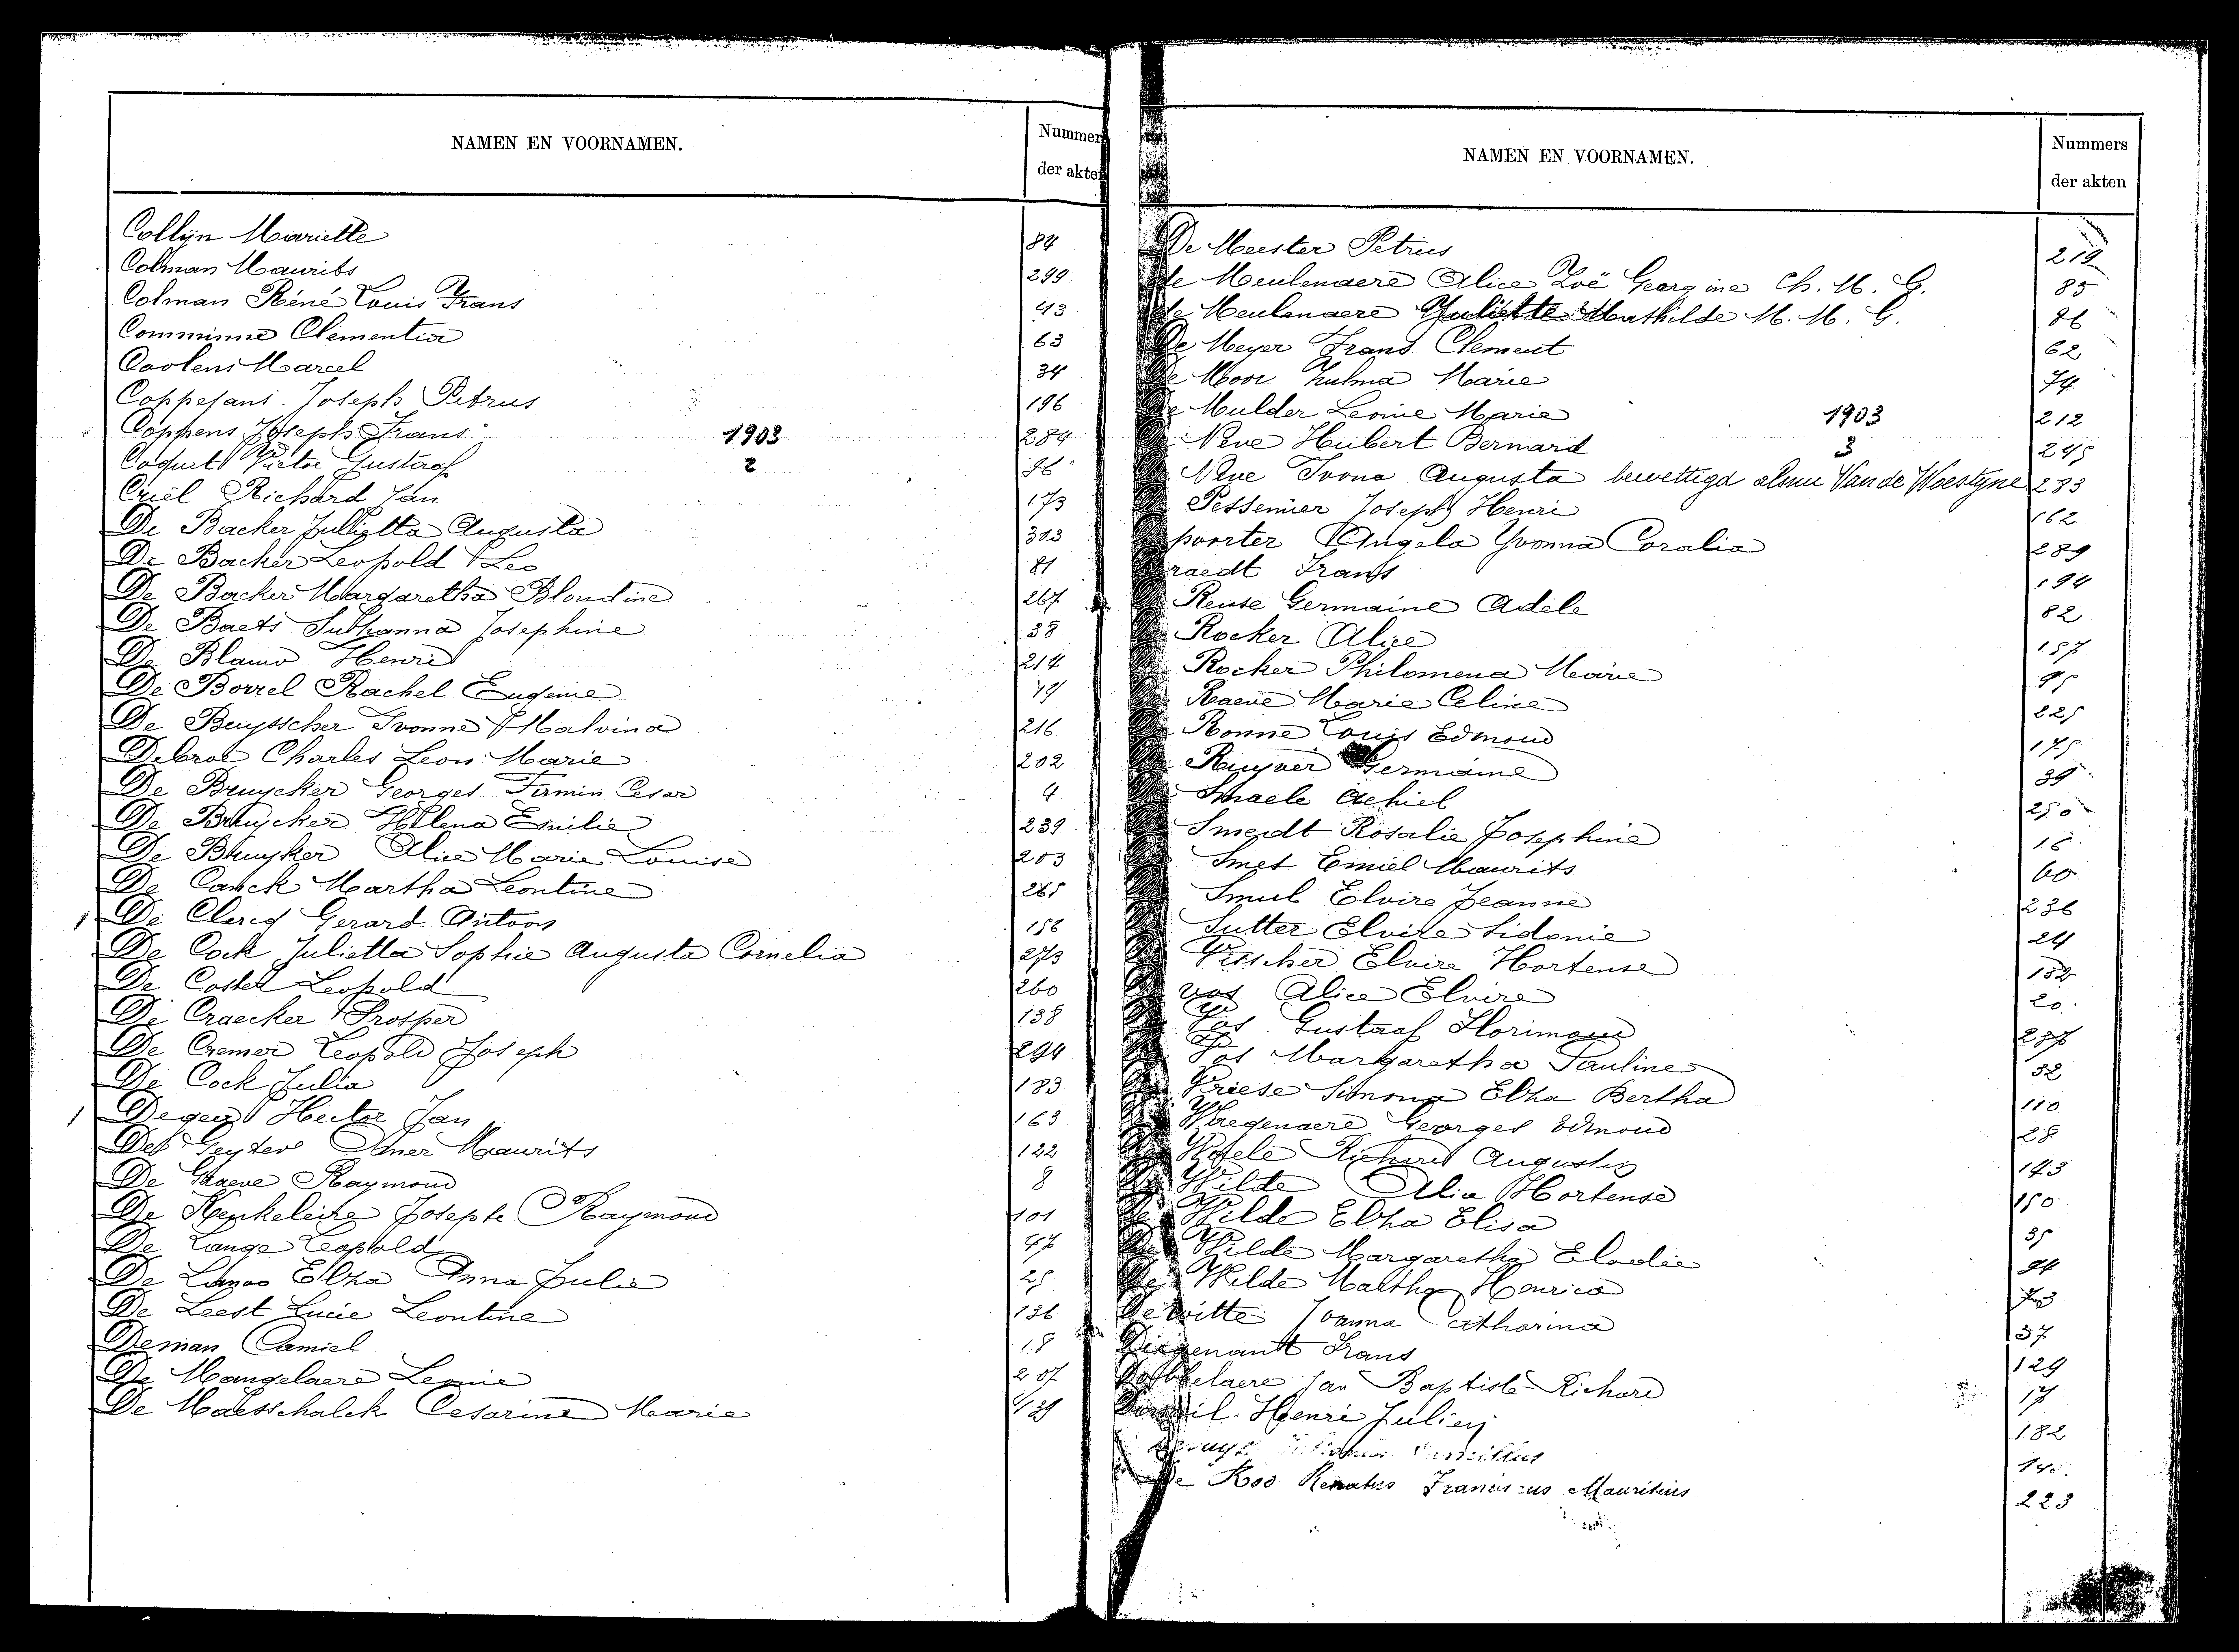 NAMEN EN VOORNAMEN.
Nummers
der akten
Collijn Mariette 84
Colman Maurits 299
Colman Réné Louis Frans 43
Comminne Clementia 63
Coolens Marcel 34
Coppejans Joseph Petrus 196
Coppens Joseph Frans 284
1903
2
Coquet Victor Gustaaf 86
Criel Richard Jan 173
De Backer Julietta Augusta 303
De Backer Leopold Leo 81
De Backer Margaretha Blondine 267
De Baets Suzanna Josephine 38
De Blauw Henri 214
De Borrel Rachel Eugenie 74
De Buysscher Ivonne Malvina 216
Debrol Charles Leon Marie 202
De Bruycker Georges Firmin Cesar 4
De Bruycker Helena Emilie 239
De Bruyker Alice Marie Louise 203
De Canck Martha Leontine 265
De Clercq Gerard Antoon 156
De Cock Julietta Sophie Augusta Cornelia 273
De Coster Leopold 260
De Craecker Prosper 138
De Cremer Leopold Joseph 294
De Cock Julia 183
Degeyt Hector Jan 163
De Geyter Omer Maurits 122
De Graeve Raymond 8
De Keukeleire Joseph Raymond 101
De Lange Leopold 47
De Lanoo Elza Anna Julia 25
De Leest Lucie Leontine 136
Deman Camiel 18
De Mangelaere Leonie 207
De Maesschalck Cesarine Marie 139
NAMEN EN VOORNAMEN.
Nummers
der akten
De Meester Petrus 219
de Meulenaere Alice Zoë Georgine Ch. M. G. 85
de Meulenaere Juliette Mathilde M. M. G. 86
De Meyer Frans Clement 62
De Moor Zulma Marie 74
De Mulder Leonie Marie 212
1903
3
De Neve Hubert Bernard 245
De Neve Ivona Augusta bewettigd alsnu Van de Woestyne 283
De Pessemier Joseph Henri 162
De poorter Angela Yvonna Coralia 289
Deraedt Frans 194
De Reuse Germaine Adele 82
De Rocker Alice 157
De Rocker Philomena Marie 95
De Raeve Marie Celine 225
De Ronne Louis Edmond 175
De Ruyver Germaine 39
De Smaele Achiel 250
De Smedt Rosalie Josephine 16
De Smet Emiel Maurits 60
De Smul Elvire Jeanne 236
De Sutter Elvire Sidonie 24
De Visscher Elvire Hortense 152
De vos Alice Elvire 20
De Vos Gustaaf Florimond 237
De Vos Margaretha Pauline 52
De Vriese Simona Elza Bertha 110
De Waegenaere Georges Edmond 28
De Weele Richard Augustin 143
De Wilde Alia Hortense 150
De Wilde Elza Elisa 35
De Wilde Margaretha Elodie
De Wilde Martha Henrica
De witte Joanna Catharina 37
Diegenant Frans 129
Dobbelaere Jan Baptiste Richard 17
Henri Julien 182
De Roo Renatus Franciscus Mauritius 223